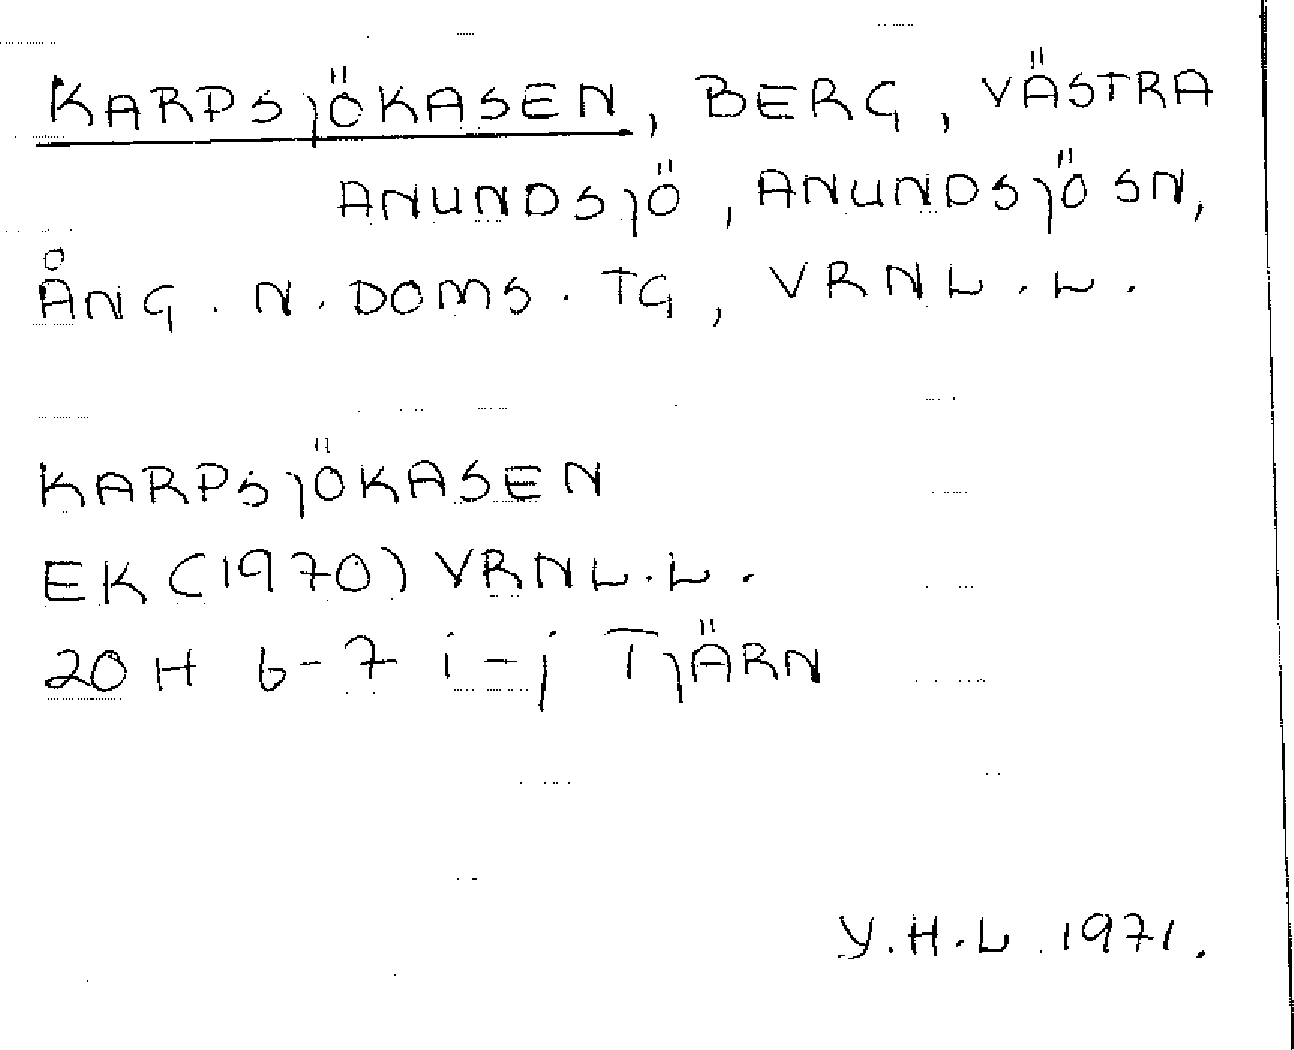 KARPSjÖKASEN, BERG, VÄSTRA
ANUNDSjÖ, ANUNDSjÖ SN,
ÅNG. N. DOMS. TG, VRNL.L.
KARPSjÖKASEN
EK (1970) VRNL.L.
20 H 6-7 i-j TjÄRN
Y.H.L. 1971.